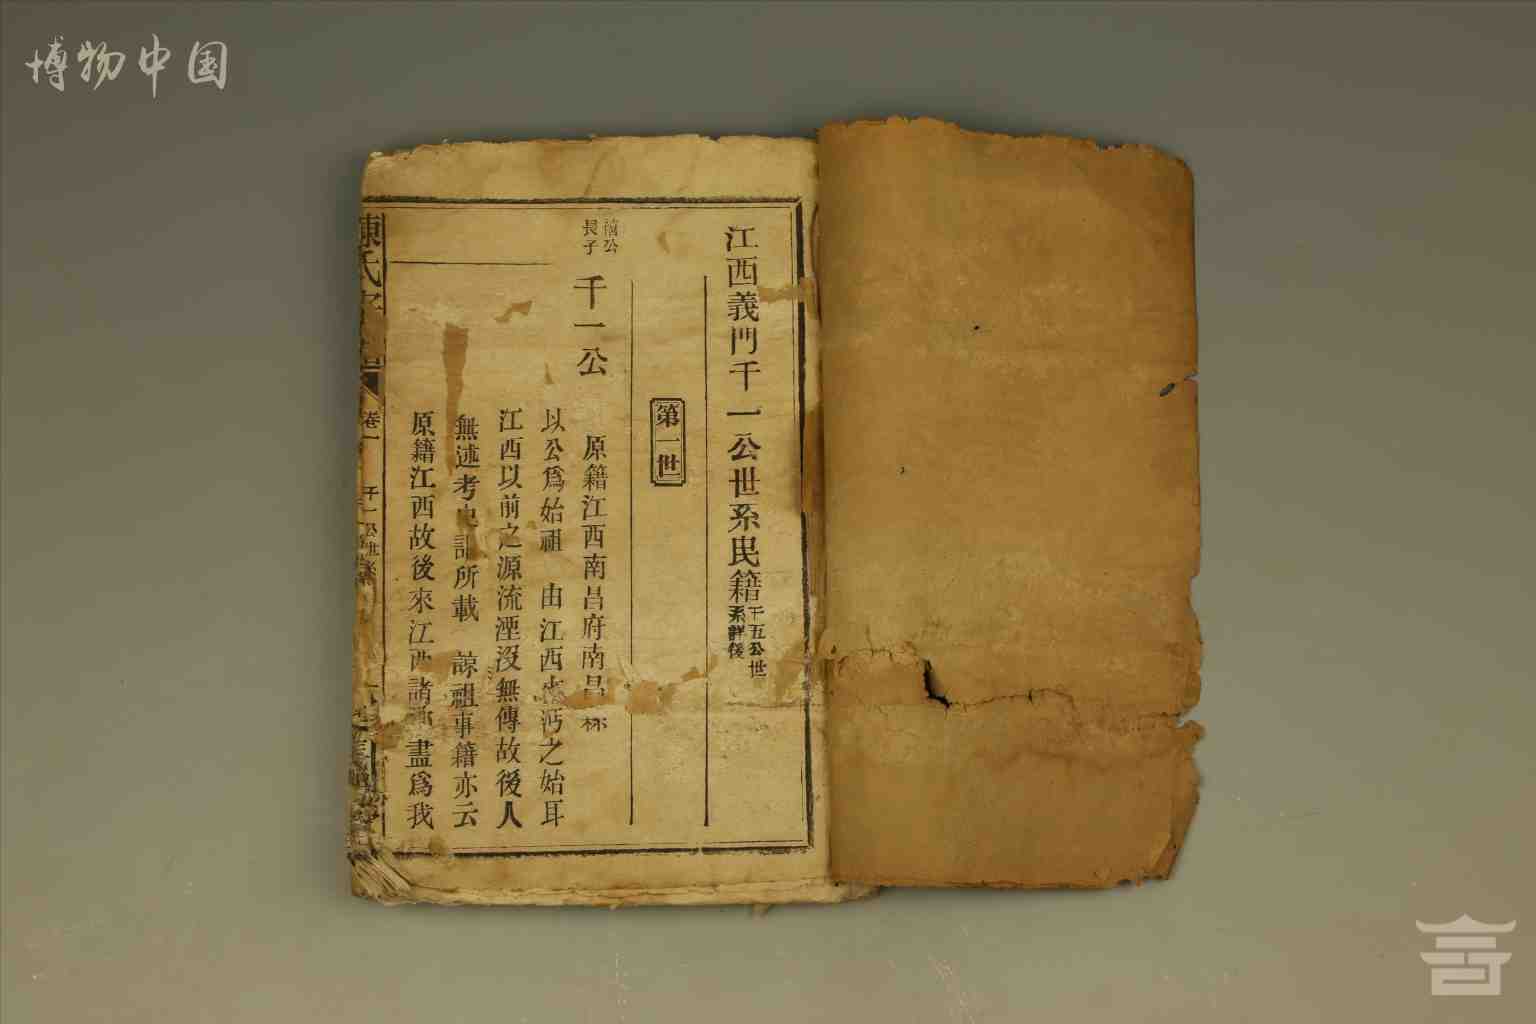 博物中国
江西義門千一公世系民籍
千五公世
系詳後
第一世
禧公
長子
千一公
原籍江西南昌府南昌
以公爲始祖 由江西來沔之始耳
江西以前之源流湮沒無傳故後人
無述考史記所載 諒祖事籍亦云
原籍江西故後來江西諸 盡爲我
陳氏宗
卷一
千一公世系